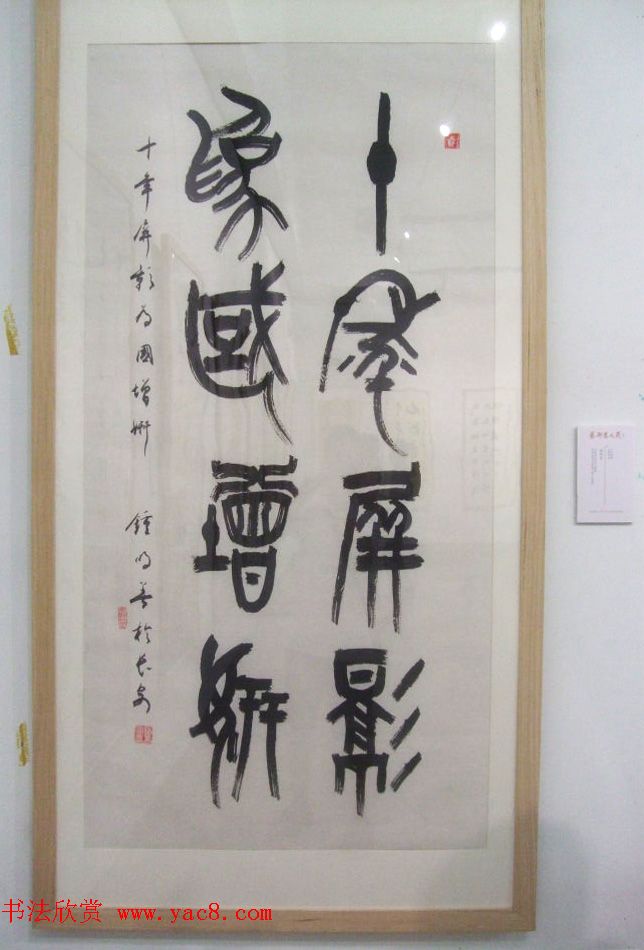 十年屏影
為國增妍
十年屏影为國增妍 鍾明善於长安
书法欣赏 www.yac8.com